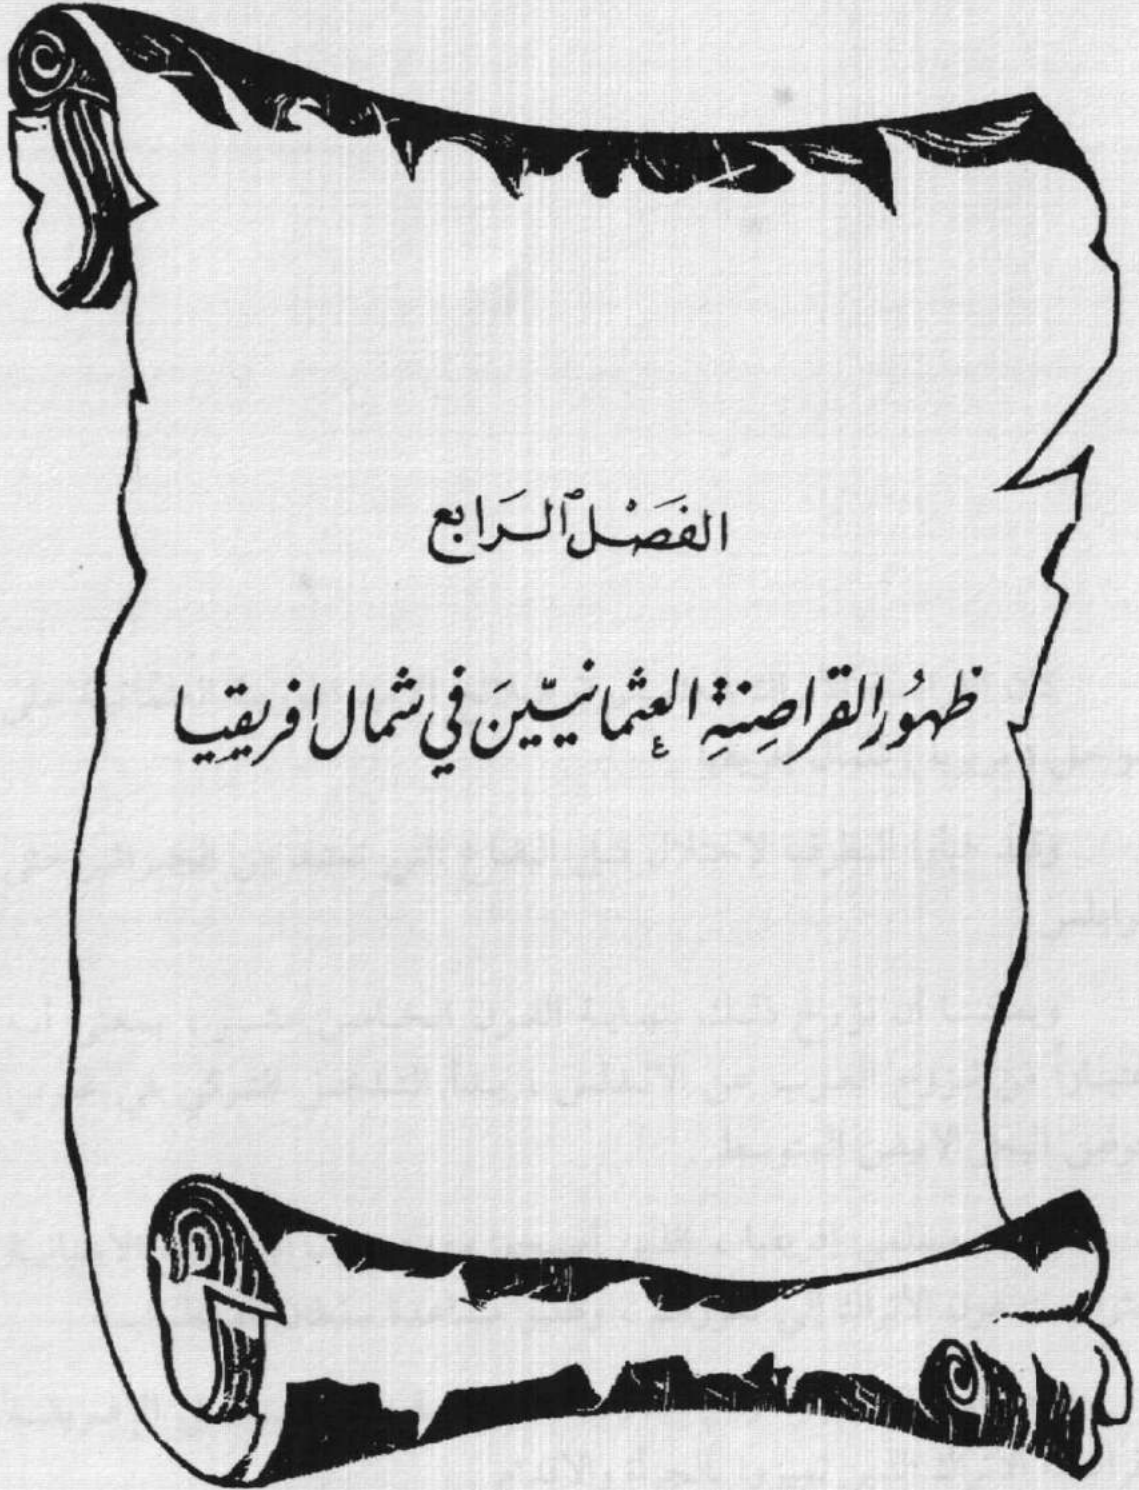 الفَصْل الرَابع
ظهُور القراصِنةِ العثمانيّينَ في شمال افريقيا